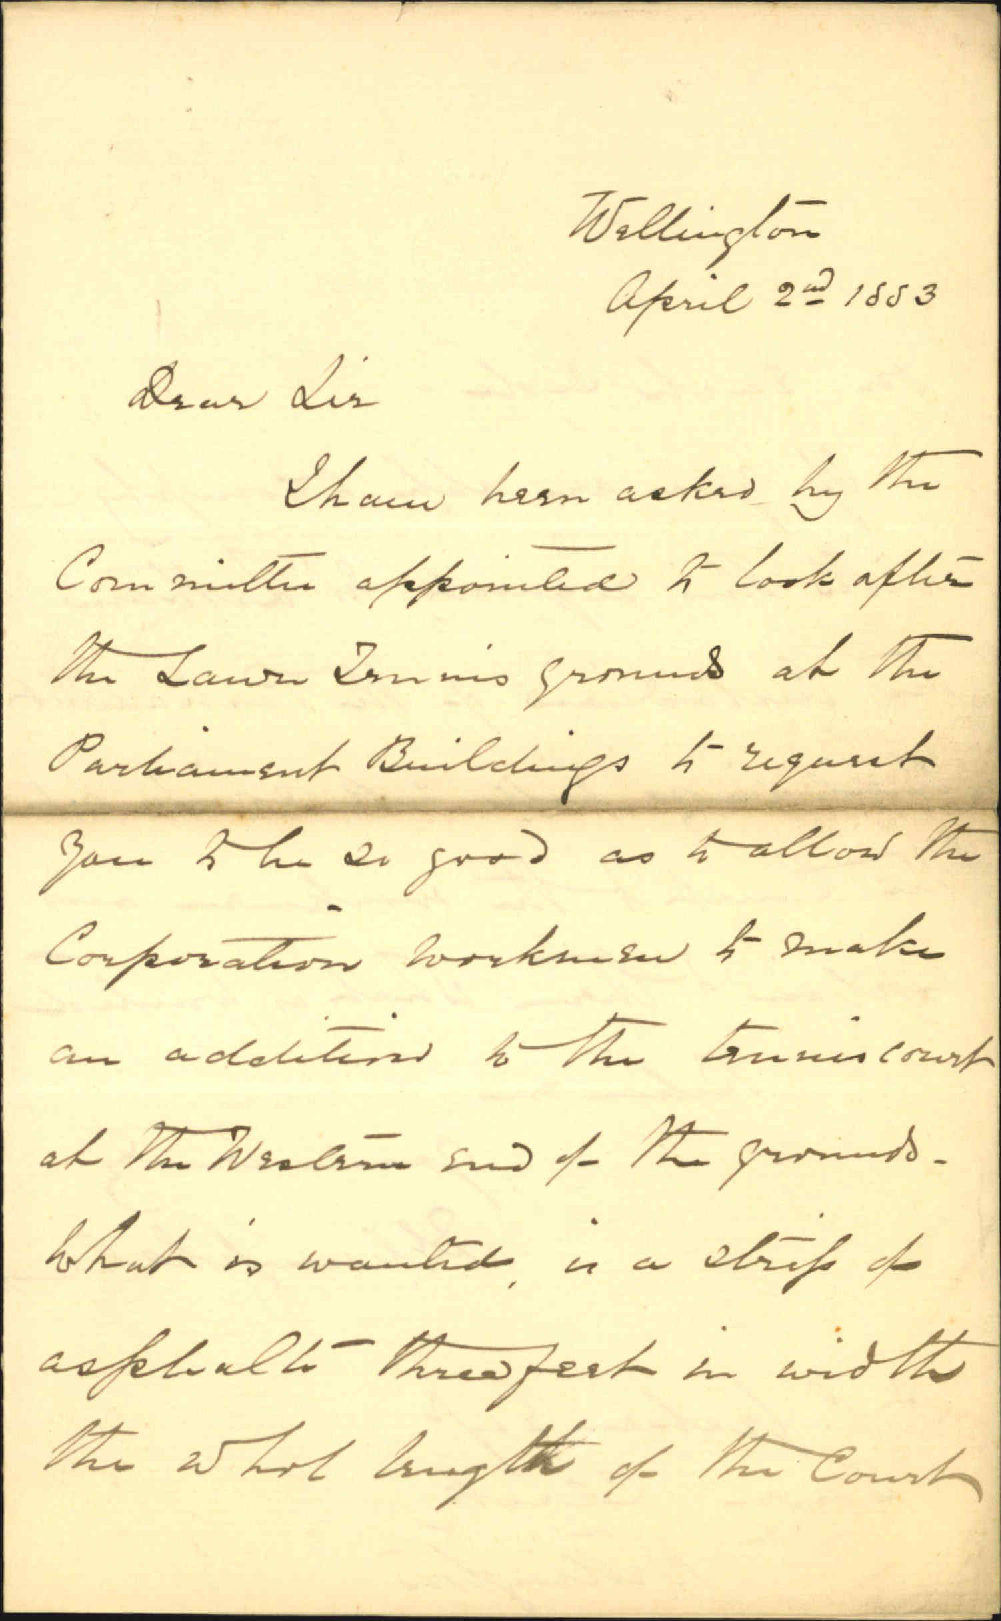 Wellington
April 2nd 1883
Dear Sir
I have been asked by the
Committee appointed to look after
the Lawn Tennis grounds at the
Parliament Buildings to request
you to be so good as to allow the
Corporation workmen to make
an addition to the tennis court
at the Western end of the grounds.
What is wanted, is a strip of
asphalte three feet in width
the whol length of the Court